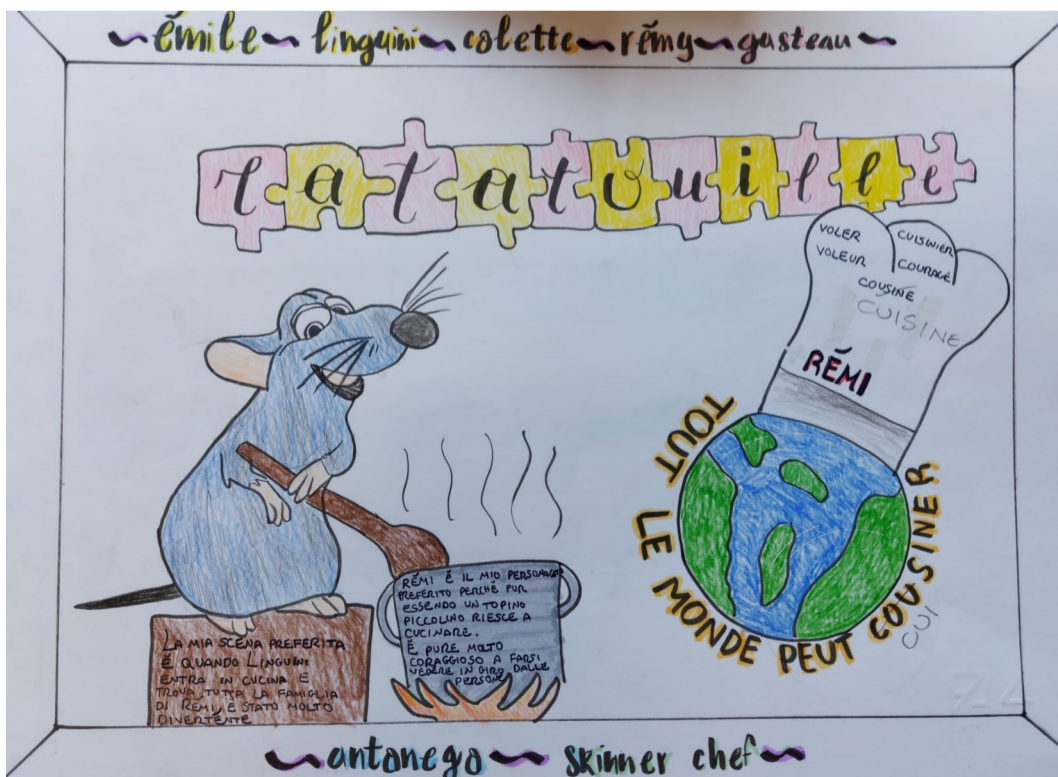 ~émile~linguini~colette~rémy~gusteau~
ratatouille
VOLER
VOLEUR
CUISINIER
COURAGE
COUSINE
CUISINE
RÉMI
TOUT LE MONDE PEUT COUSINER
CUI
RÉMI É IL MIO PERSONAGGI
PREFERITO PERCHÉ PUR
ESSENDO UN TOPINO
PICCOLINO RIESCE A
CUCINARE.
É PURE MOLTO
CORAGGIOSO A FARSI
VEDERE IN GIRO DALLE
PERSONE
LA MIA SCENA PREFERITA
É QUANDO LINGUINI
ENTRA IN CUCINA E
TROVA TUTTA LA FAMIGLIA
DI RÉMI, E STATO MOLTO
DIVERTENTE
~antonego~ skinner chef~